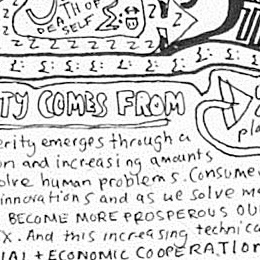 DEATH OF
SELF
TY COMES FROM
erity emerges through a
on and increasing amounts
olve human problems. Consume
innovations and as we solve m
BECOME MORE PROSPEROUS OU
x. And this increasing technica
IAL + ECONOMIC COOPERATION
pla